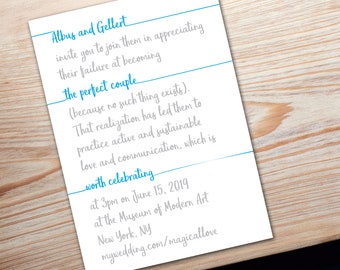 Albus and Gellert
invite you to join them in appreciating
their failure at becoming
the perfect couple
(because no such thing exists).
That realization has led them to
practice active and sustainable
love and communication, which is
worth celebrating
at 3pm on June 15, 2019
at the Museum of Modern Art
New York, NY
mywedding.com/magicallove